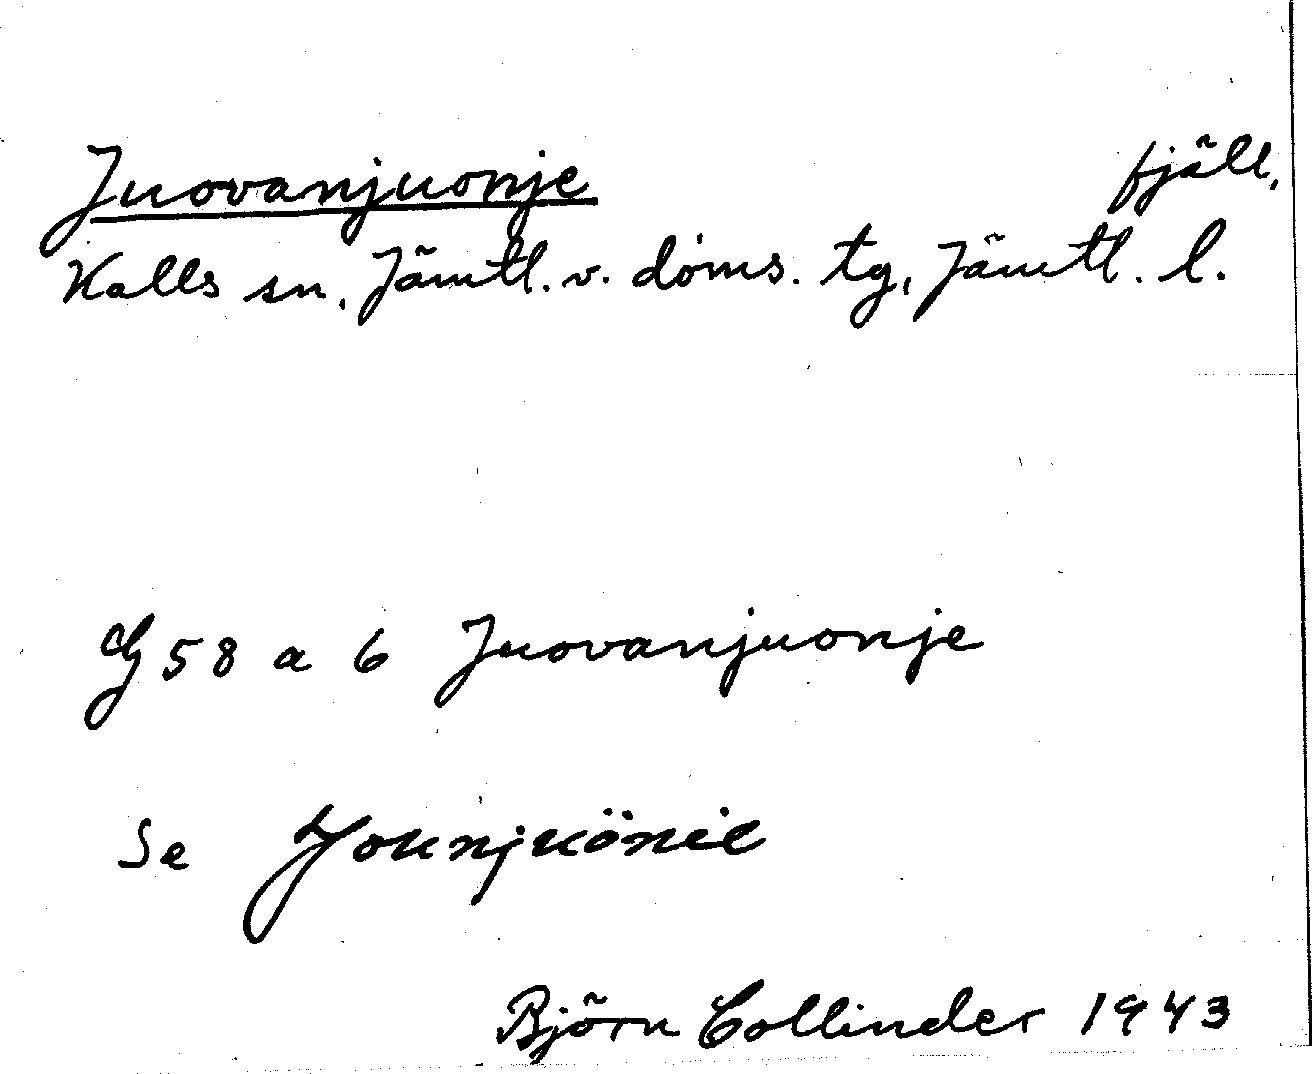 Juovanjuonje fjäll,
Kalls sn, Jämtl. v. doms. tg, Jämtl. l.
G 58 a 6 Juovanjuonje
Se Jounjuönie
Björn Collinder 1943